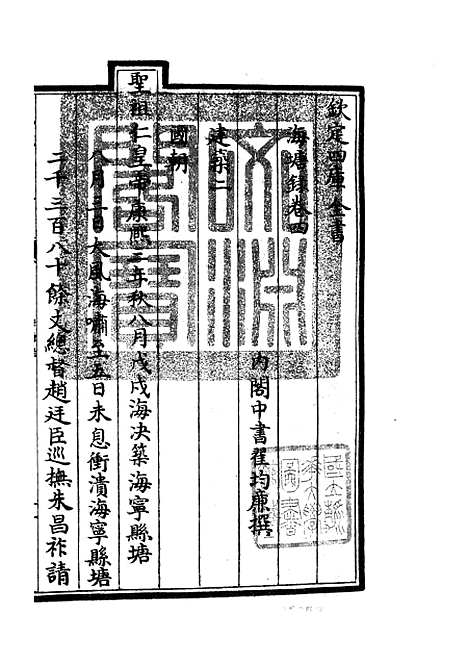 欽定四庫全書
海塘録卷四
內閣中書翟均廉撰
建築二
國朝
聖祖仁皇帝康熙三年秋八月戊戌海決築海寧縣塘
八月三日大風海嘯至五日未息衝潰海寧縣塘
二千三百八十餘丈總督趙廷臣巡撫朱昌祚請
文淵閣寶